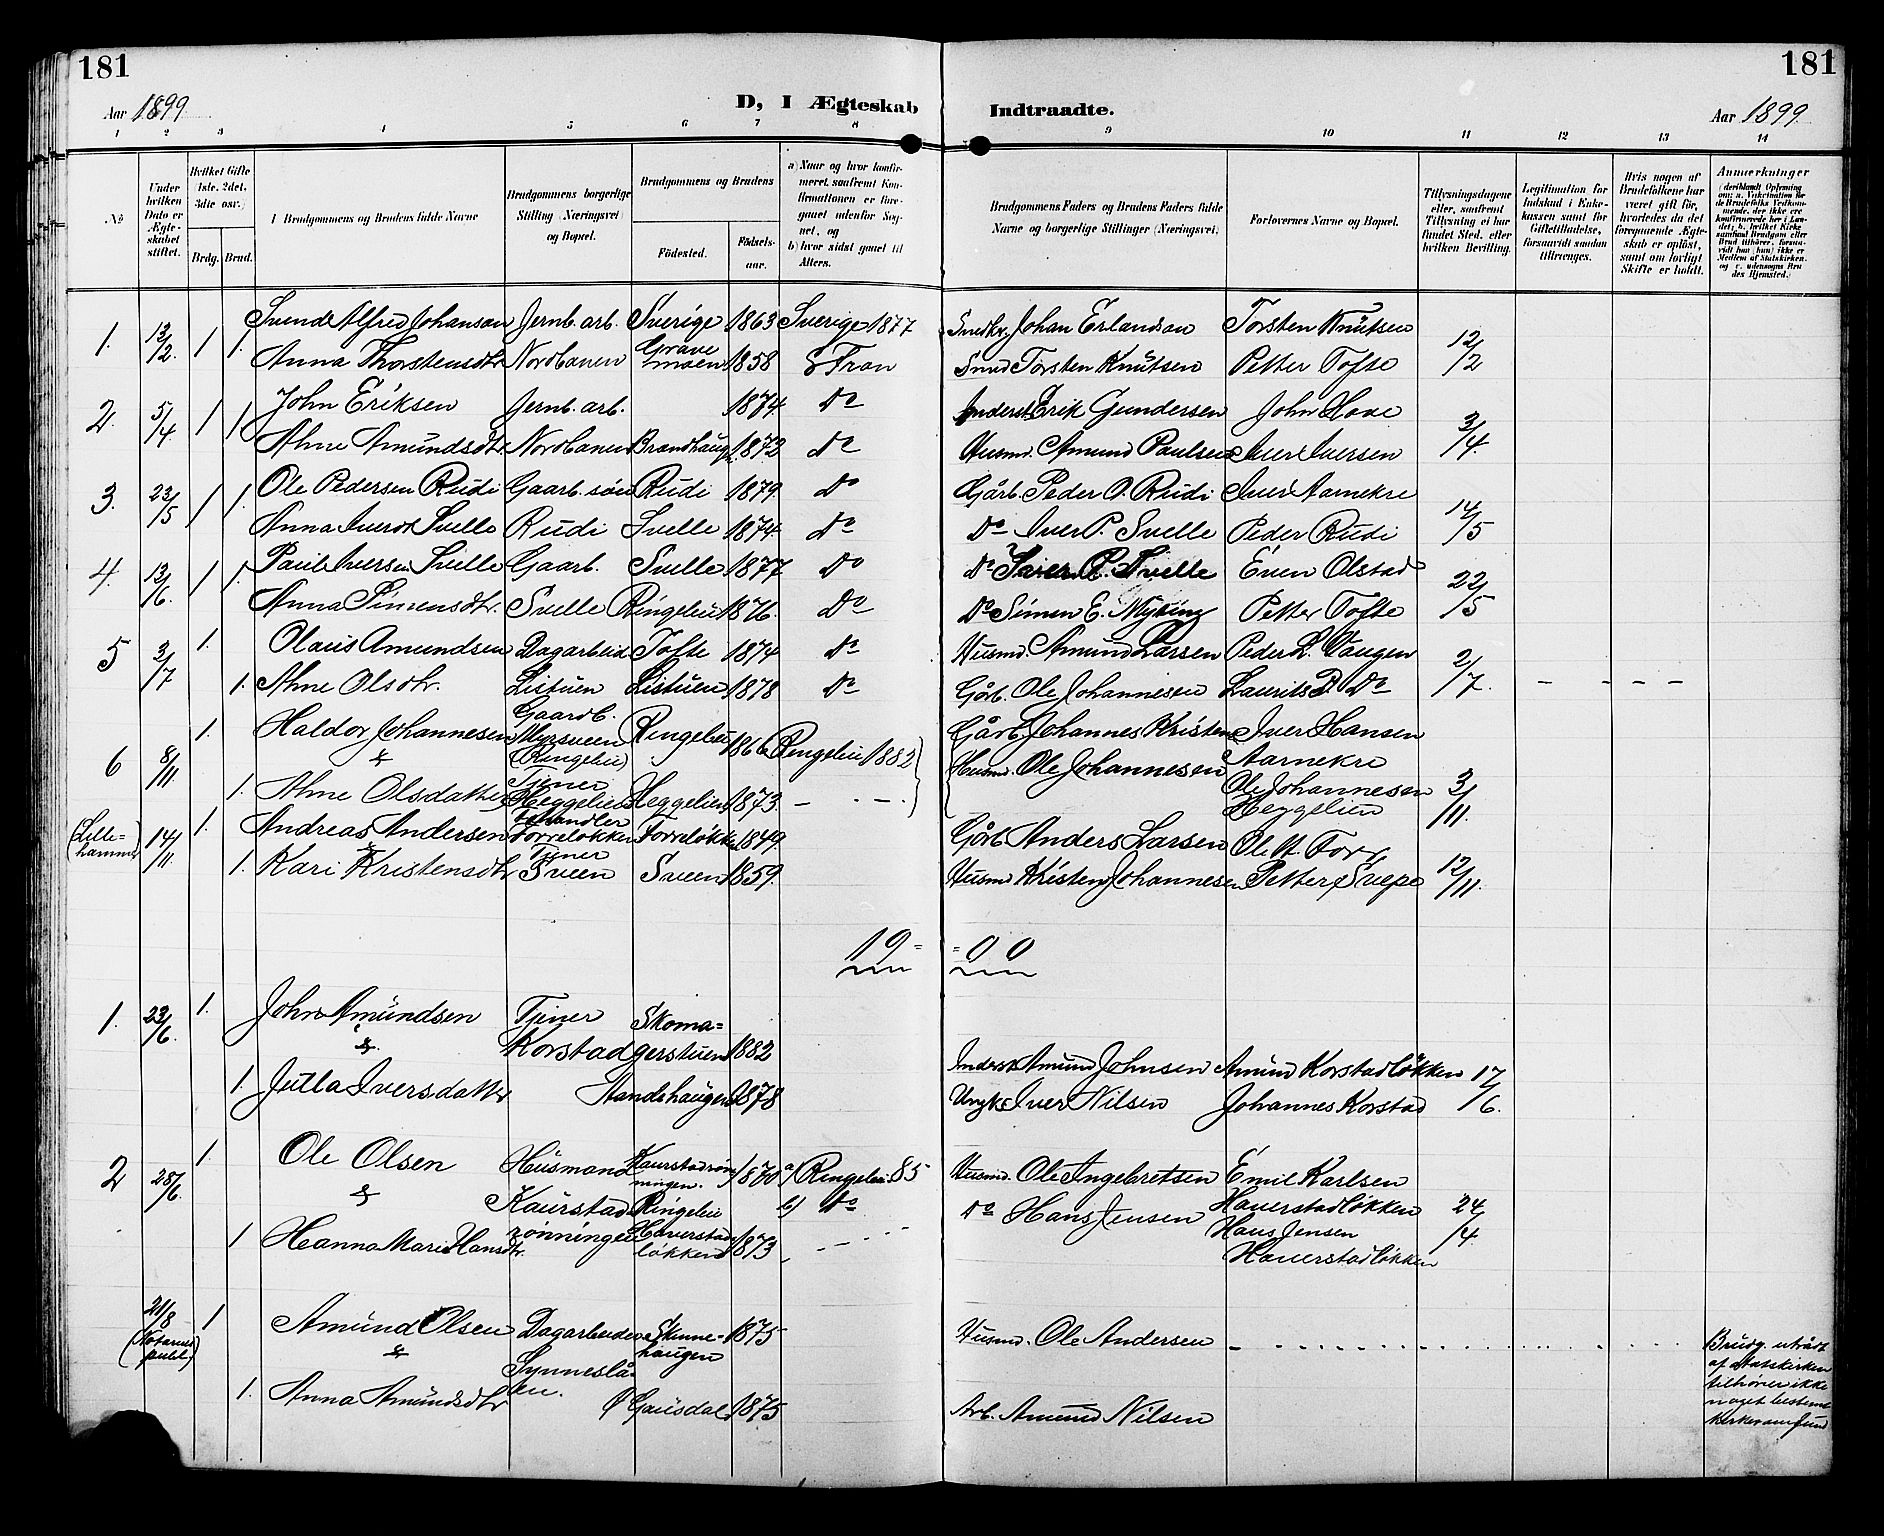 181
181
Aar 1899.
D, I Ægteskab Indtraadte.
Aar 1899.
1 2 3 4 5 6 7 8 9 10 11 12 13 14
No
Under hvilken Dato er Ægteskabet stiftet.
Hvilket Gifte 1ste, 2det, 3die osv.)
Brdg. Brud.
Brudgommens og Brudens fulde Navne
Brudgommens borgerlige Stilling (Næringsvei) og Bopæl.
Brudgommens og Brudens
Fødested.
Fødsels-aar.
a) Naar og hvor konfirmeret, saafremt Konfirmationen er foregaaet udenfor Sognet, og
b) hvor sidst gaaet til Alters.
Brudgommens Faders og Brudens Faders fulde Navne og borgerlige Stillinger (Næringsvei)
Forlovernes Navne og Bopæl.
Tillysningsdagene eller, saafremt Tillysning ei har fundet Sted, efter hvilken Bevilling.
Legitimation for Indskud i Enkekassen samt for Giftetilladelse, forsaavidt saadan tiltrænges.
Hvis nogen af Brudefolkene har været gift før, hvorledes da det foregaaende Ægteskab er opløst, samt om lovligt Skifte er holdt.
Anmærkninger
1. 13/2. 1 1. Svend Alfred Johanson Jernb. arb. Sverige 1863 Sverige 1877 Snedkr. Johan Erlandson Torsten Knutsen 12/2
Anna Thorstensdtr Nordbanen 1858 Smed Torsten Knutsen Petter Tofte
2. 5/4. 1 1 John Eriksen Jernb. arb. 1874 Do Inderst Erik Gundersen John Hove 3/4.
Ahne Amundsdtr Nordbanen Brandhaug 1872 Do Husmd. Amund Paulsen Iver Iversen
3. 23/5 1 1. Ole Pedersen Rudi Gaarb. søn Rudi 1879. Do Gårb. Peder O. Rudi Iver Aarnekre 14/5
Anna Iversdt Svelle Rudi Svelle 1874. Do Do Iver P. Svelle Peder Rudi
4. 13/6. 1 1. Paul Iversen Svelle Gaarb. Svelle 1877 Do Do Iver P. Svelle Even Olstad 22/5
Anna Simensdtr. Svelle Ringebu 1876. Do Do Simen E. Myking Petter Tofte
5 3/7 1. Olaus Amundsen Dagarbeid. Tofte 1874 Do Husmd. Amund Larsen Peder L. Vaugen 2/7.
1. Ahne Olsdtr. Listuen Listuen 1878 Do Gårb. Ole Johannesen Laurits P. Do
6 8/11 1. Haldor Johannesen Gaardb. Myrsveen (Ringebu) Ringebu 1866 Ringebu 1882 Gårb. Johannes Kristens. Iver Hansen Aarnekre 3/11.
&
1. Ahne Olsdatter Tjener Heggelien Heggelien 1873. Husmd. Ole Johannesen Ole Johannesen Heggelien
(Lillehammer) 14/11. 1. Andreas Andersen Forreløkken Forreløkk 1849. Gårb. Anders Larsen 12/11.
1. Kari Kristensdtr Tjener Sveen Sveen 1859. Husmd Kristen Johannesen Petter Svepe
19 = = 00
1. 23/6. 1. John Amundsen Tjener Korstad Skomagerstuen 1882 Inderst Amund Johnsen Amund Korstadløkken 17/6.
&
1. Jutla Iversdatter Standshaugen 1878 Iver Nilsen Johannes Korstad
2 28/6. 1 Ole Olsen Husmand Kaurstadrønningen Kaurstadrønningen. Ringebu 1870 a) Ringebu 85 b) Do Husmd. Ole Ingebretsen Emil Karlsen Haverstadløkken 24/4.
&
1 Hanna Marie Hansdtr. Haverstadløkken 1873 Do Hans Jensen Hans Jensen Haverstadløkken
21/8 (Notarius publ.) 1 Amund Olsen Dagarbeider Synneslåen. Skinnehaugen 1875 Husmd. Ole Andersen Brudg. utrådt af Statskirken tilhører ikke noget bestemt kirkesamfund
&
1. Anna Amundsdtr Ø Gausdal 1875 Arb. Amund Nilsen